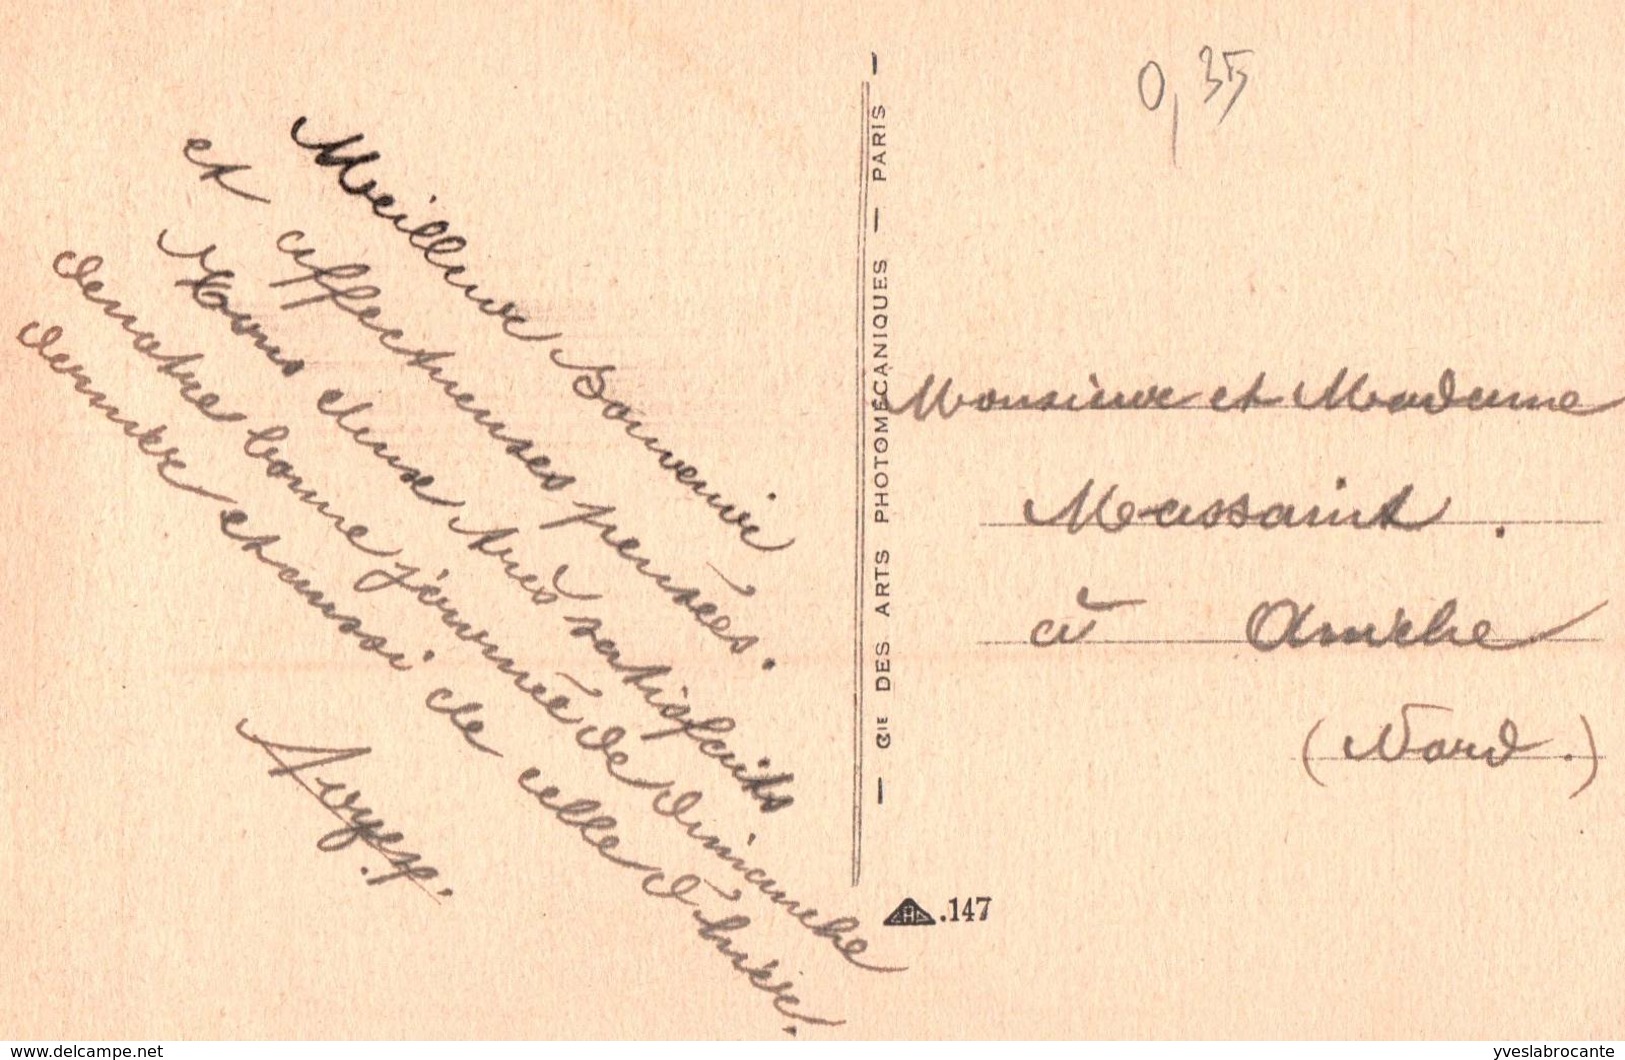 Meilleur Souvenir
et affectueuses pensées.
Tous deux très satisfaits
de notre bonne journée de dimanche
dernier et aussi de celle d'hier.
0,35
Monsieur et Madame
Massaint.
à Aniche
(Nord.)
— Cie DES ARTS PHOTOMÉCANIQUES — PARIS —
.147
www.delcampe.net
yveslabrocante